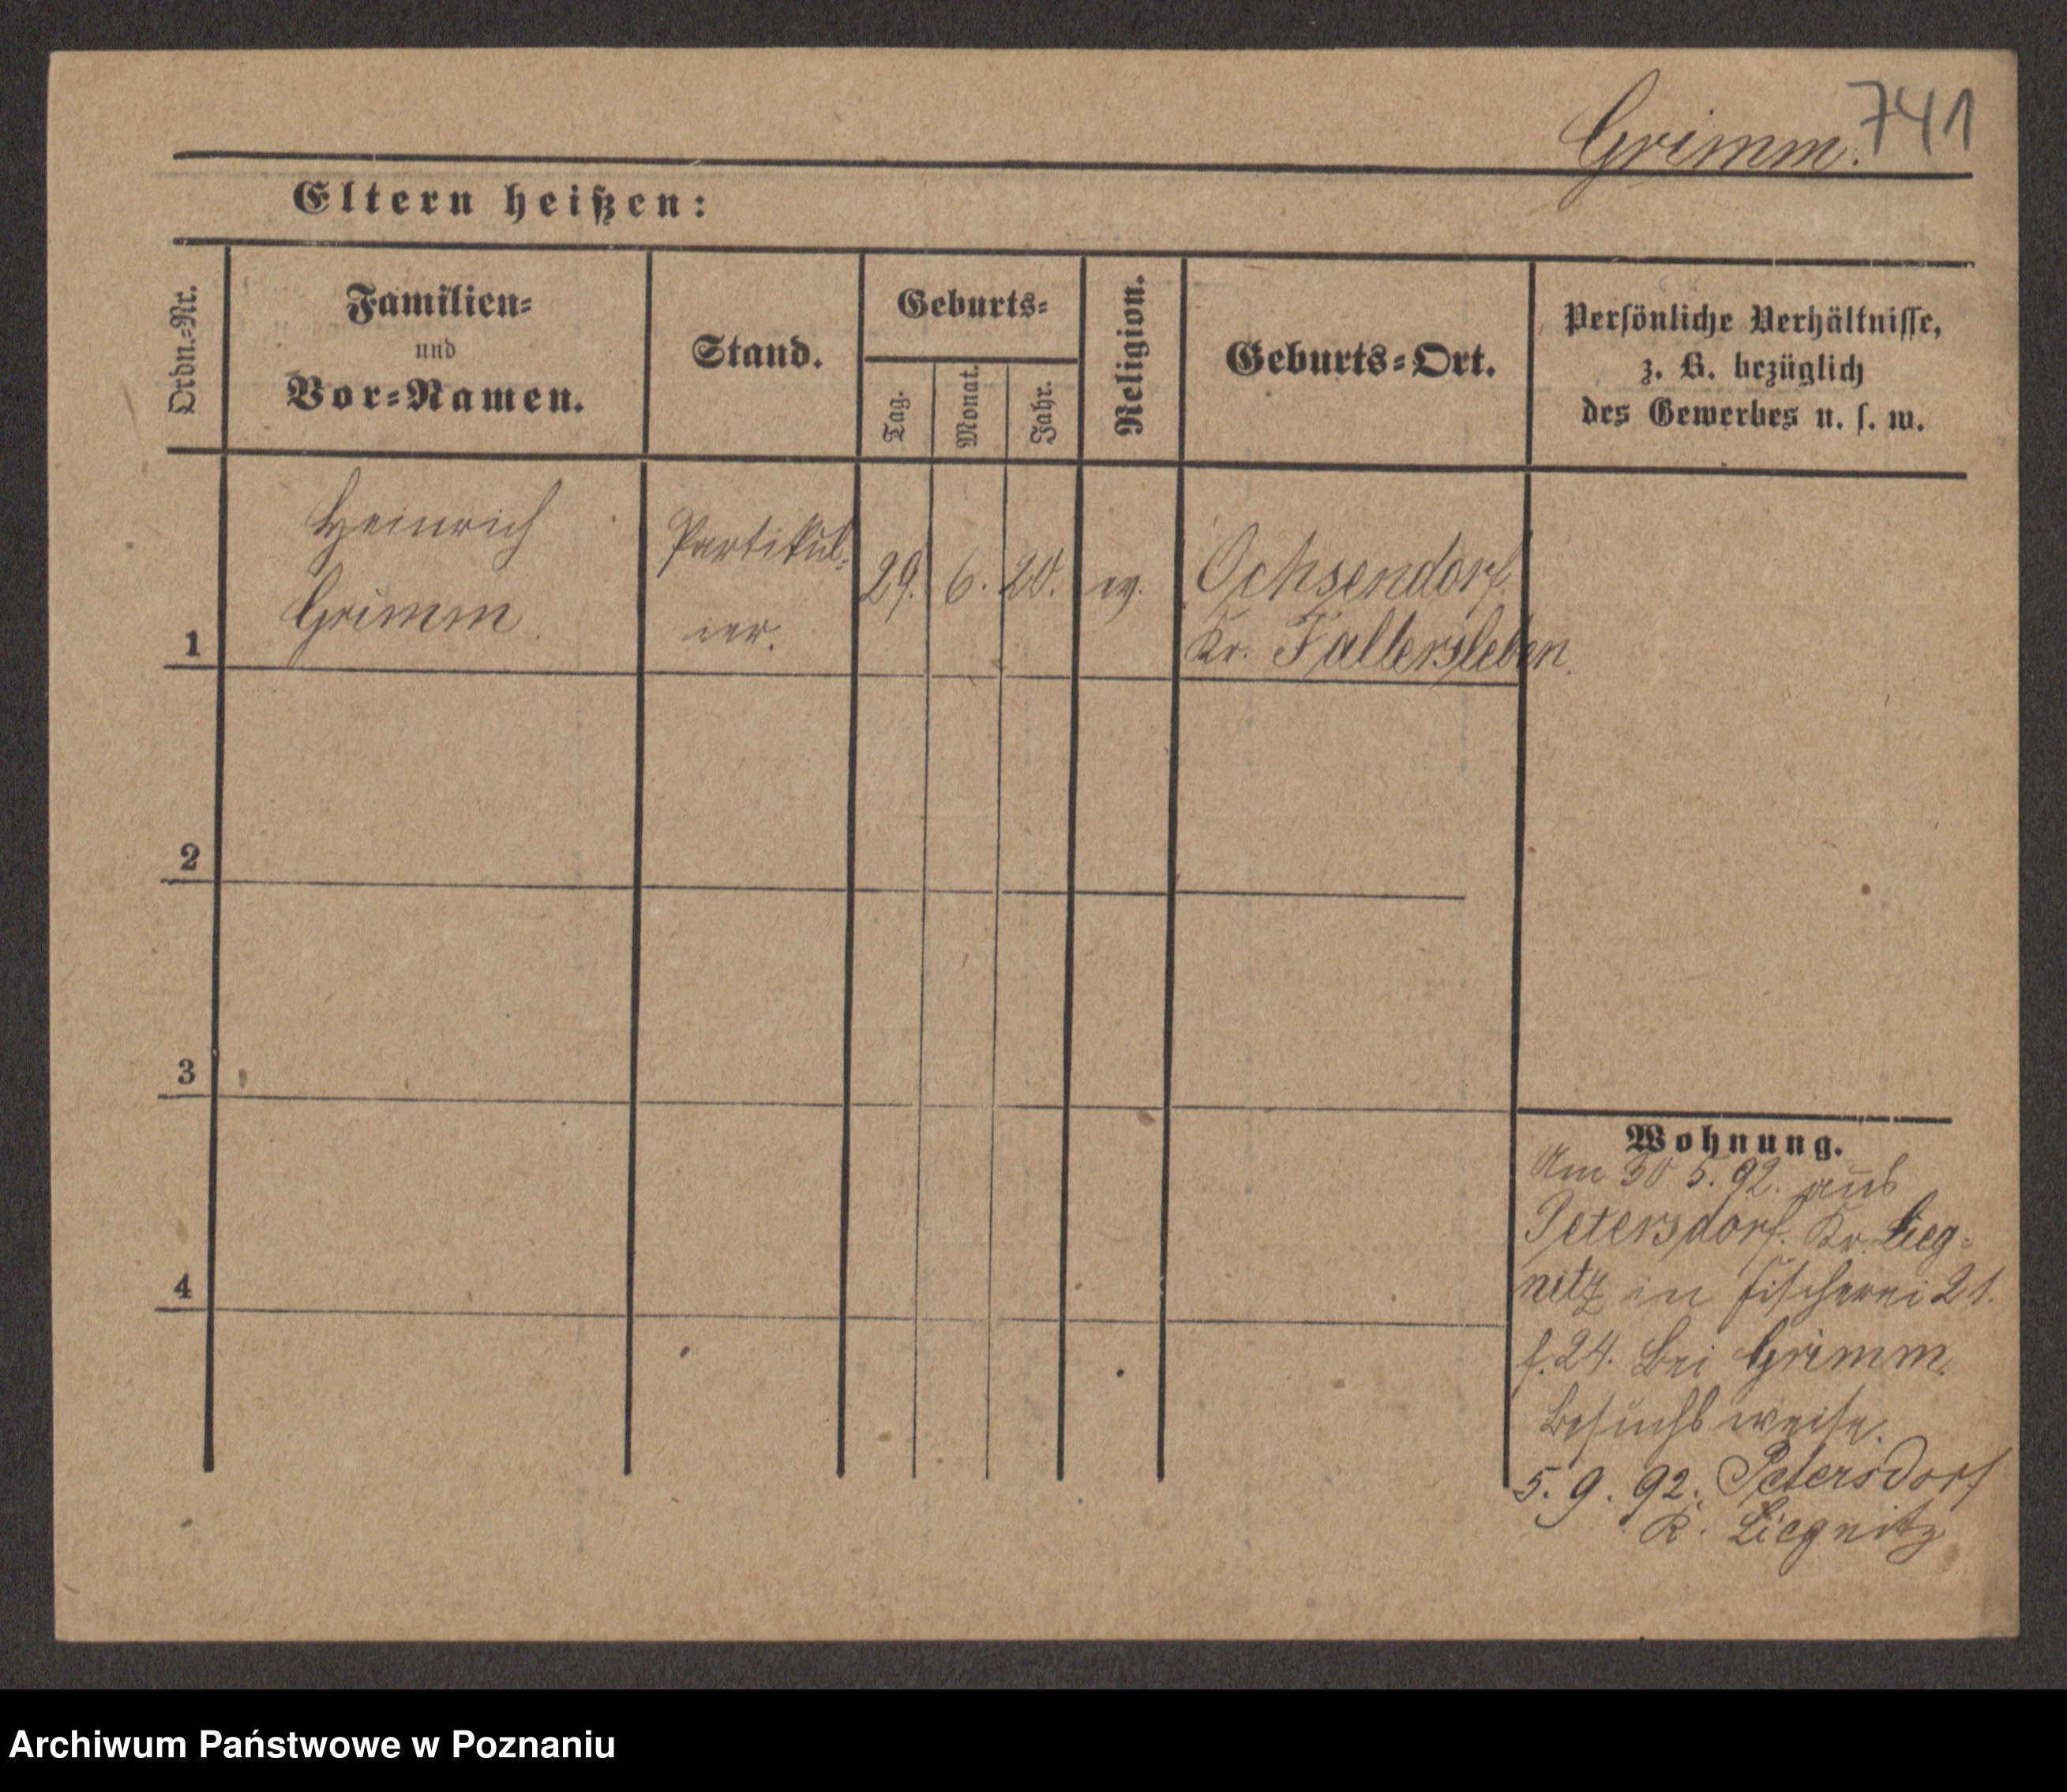 Grimm. 741
Eltern heißen:
Ordn.-Nr.
Familien-
und
Vor-Namen.
Stand.
Geburts-
Tag.
Monat.
Jahr.
Religion.
Geburts-Ort.
Persönliche Verhältnisse,
z. B. bezüglich
des Gewerbes u. s. w.
1
Heinrich
Grimm.
Partikul-
ier.
29. 6. 20. ev.
Ochsendorf.
Kr. Fallersleben.
2
3
4
Wohnung.
Am 30. 5. 92. aus
Petersdorf. Kr. Lieg-
nitz in Fischerei 21.
f. 24. bei Grimm.
Besuchsweise.
5. 9. 92. Petersdorf
K. Liegnitz
Archiwum Państwowe w Poznaniu